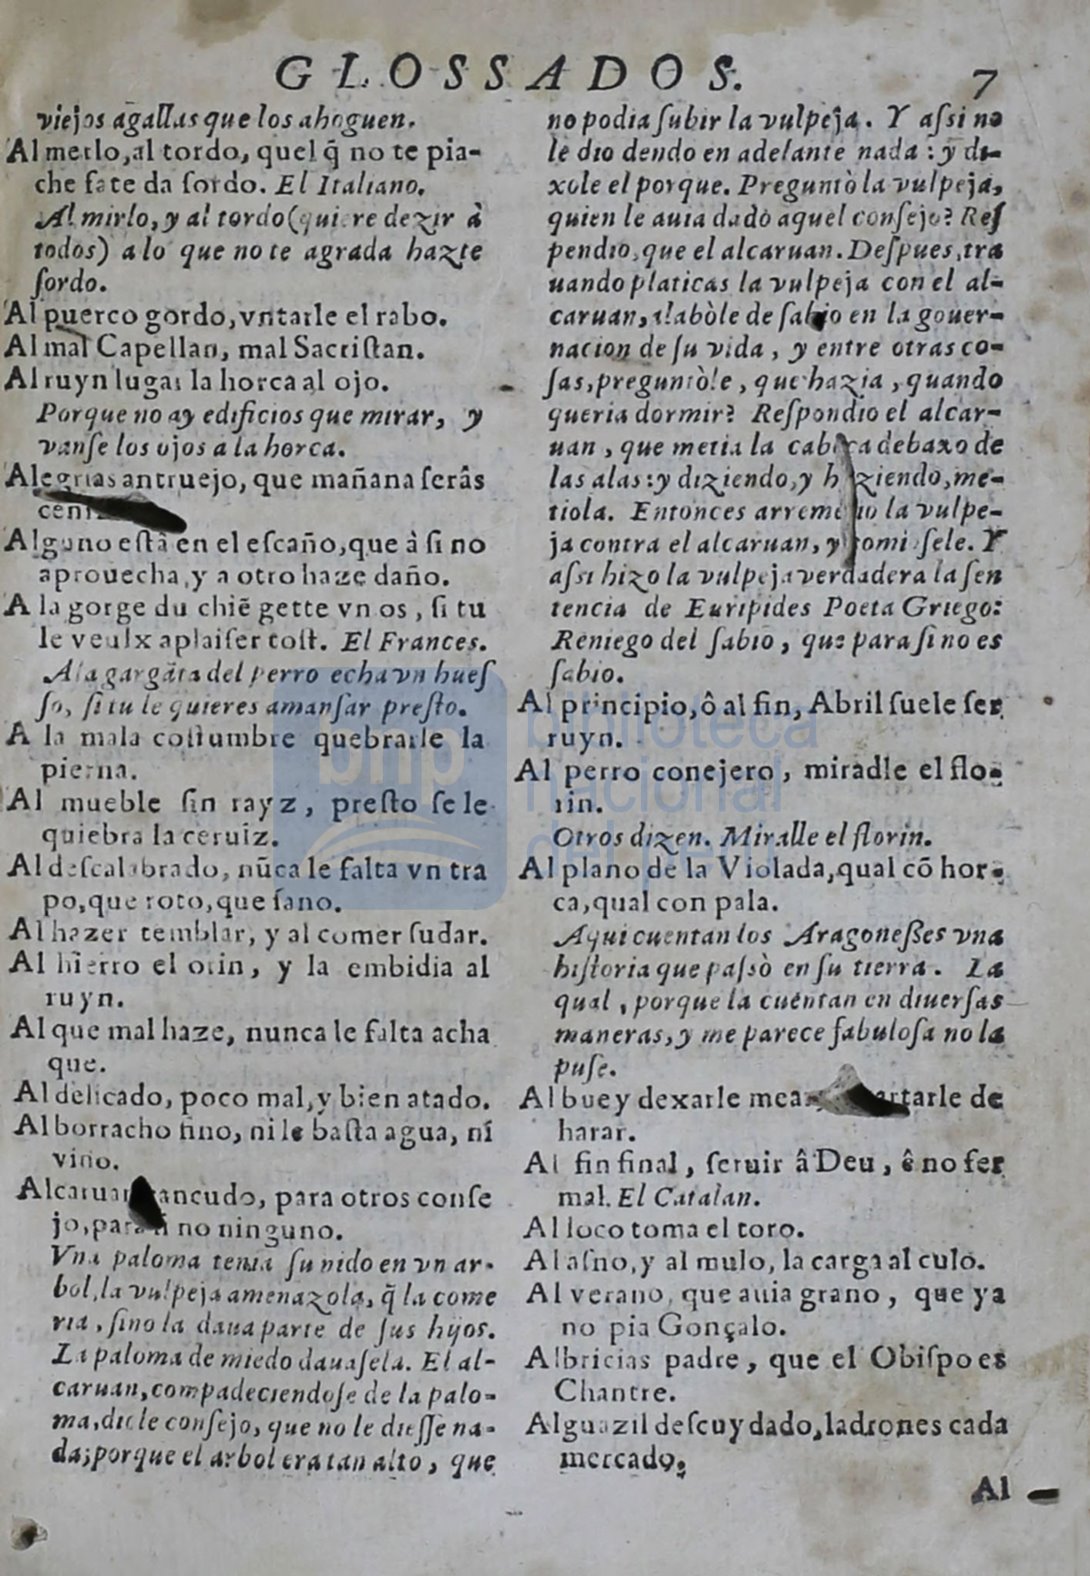 GLOSSADOS. 7
viejos agallas que los ahoguen.
Al merlo, al tordo, quel q̃ no te pia-
che fate da ſordo. El Italiano.
Al mirlo, y al tordo (quiere dezir à
todos) a lo que no te agrada hazte
ſordo.
Al puerco gordo, vntarle el rabo.
Al mal Capellan, mal Sacriſtan.
Al ruyn lugar la horca al ojo.
Porque no ay edificios que mirar, y
vanſe los ojos a la horca.
Alegrias antruejo, que mañana ſerâs
Alguno eſtà en el eſcaño, que à ſi no
aprouecha, y a otro haze daño.
A la gorge du chiẽ gette vn os, ſi tu
le veulx aplaiſer toſt. El Frances.
A la gargãta del perro echa vn hueſ
ſo, ſi tu le quieres amanſar preſto.
A la mala coſtumbre quebrarle la
pierna.
Al mueble ſin rayz, preſto ſe le
quiebra la ceruiz.
Al deſcalabrado, nũca le falta vn tra
po, que roto, que ſano.
Al hazer temblar, y al comer ſudar.
Al hierro el orin, y la embidia al
ruyn.
Al que mal haze, nunca le falta acha
que.
Al delicado, poco mal, y bien atado.
Al borracho fino, ni le baſta agua, ni
vino.
Alcaruan çancudo, para otros conſe
jo, para ſi no ninguno.
Vna paloma tenia ſu nido en vn ar-
bol, la vulpeja amenazola, q̃ la come
ria, ſino la daua parte de ſus hijos.
La paloma de miedo dauaſela. El al-
caruan, compadeciendoſe de la palo-
ma, diole conſejo, que no le dieſſe na-
da; porque el arbol era tan alto, que
no podia ſubir la vulpeja. Y aſsi no
le dio dendo en adelante nada: y di-
xole el porque. Preguntò la vulpeja,
quien le auia dado aquel conſejo? Reſ
pendio, que el alcaruan. Deſpues, tra
uando platicas la vulpeja con el al-
caruan, alabòle de ſabio en la gouer-
nacion de ſu vida, y entre otras co-
ſas, preguntòle, que hazia, quando
queria dormir? Reſpondio el alcar-
uan, que metia la cabeça debaxo de
las alas: y diziendo, y haziendo, me-
tiola. Entonces arremetio la vulpe-
ja contra el alcaruan, y comioſele. Y
aſsi hizo la vulpeja verdadera la ſen
tencia de Euripides Poeta Griego:
Reniego del ſabio, que para ſi no es
ſabio.
Al principio, ô al fin, Abril ſuele ſer
ruyn.
Al perro conejero, miradle el flo-
rin.
Otros dizen. Miralle el florin.
Al plano de la Violada, qual cõ hor-
ca, qual con pala.
Aqui cuentan los Aragoneſſes vna
hiſtoria que paſsò en ſu tierra. La
qual, porque la cuentan en diuerſas
maneras, y me parece fabuloſa no la
puſe.
Al buey dexarle mear, y hartarle de
harar.
Al fin final, ſeruir â Deu, ê no fer
mal. El Catalan.
Al loco toma el toro.
Al aſno, y al mulo, la carga al culo.
Al verano, que auia grano, que ya
no pia Gonçalo.
Albricias padre, que el Obiſpo es
Chantre.
Alguazil deſcuydado, ladrones cada
mercado.
Al
bnp biblioteca
nacional
del